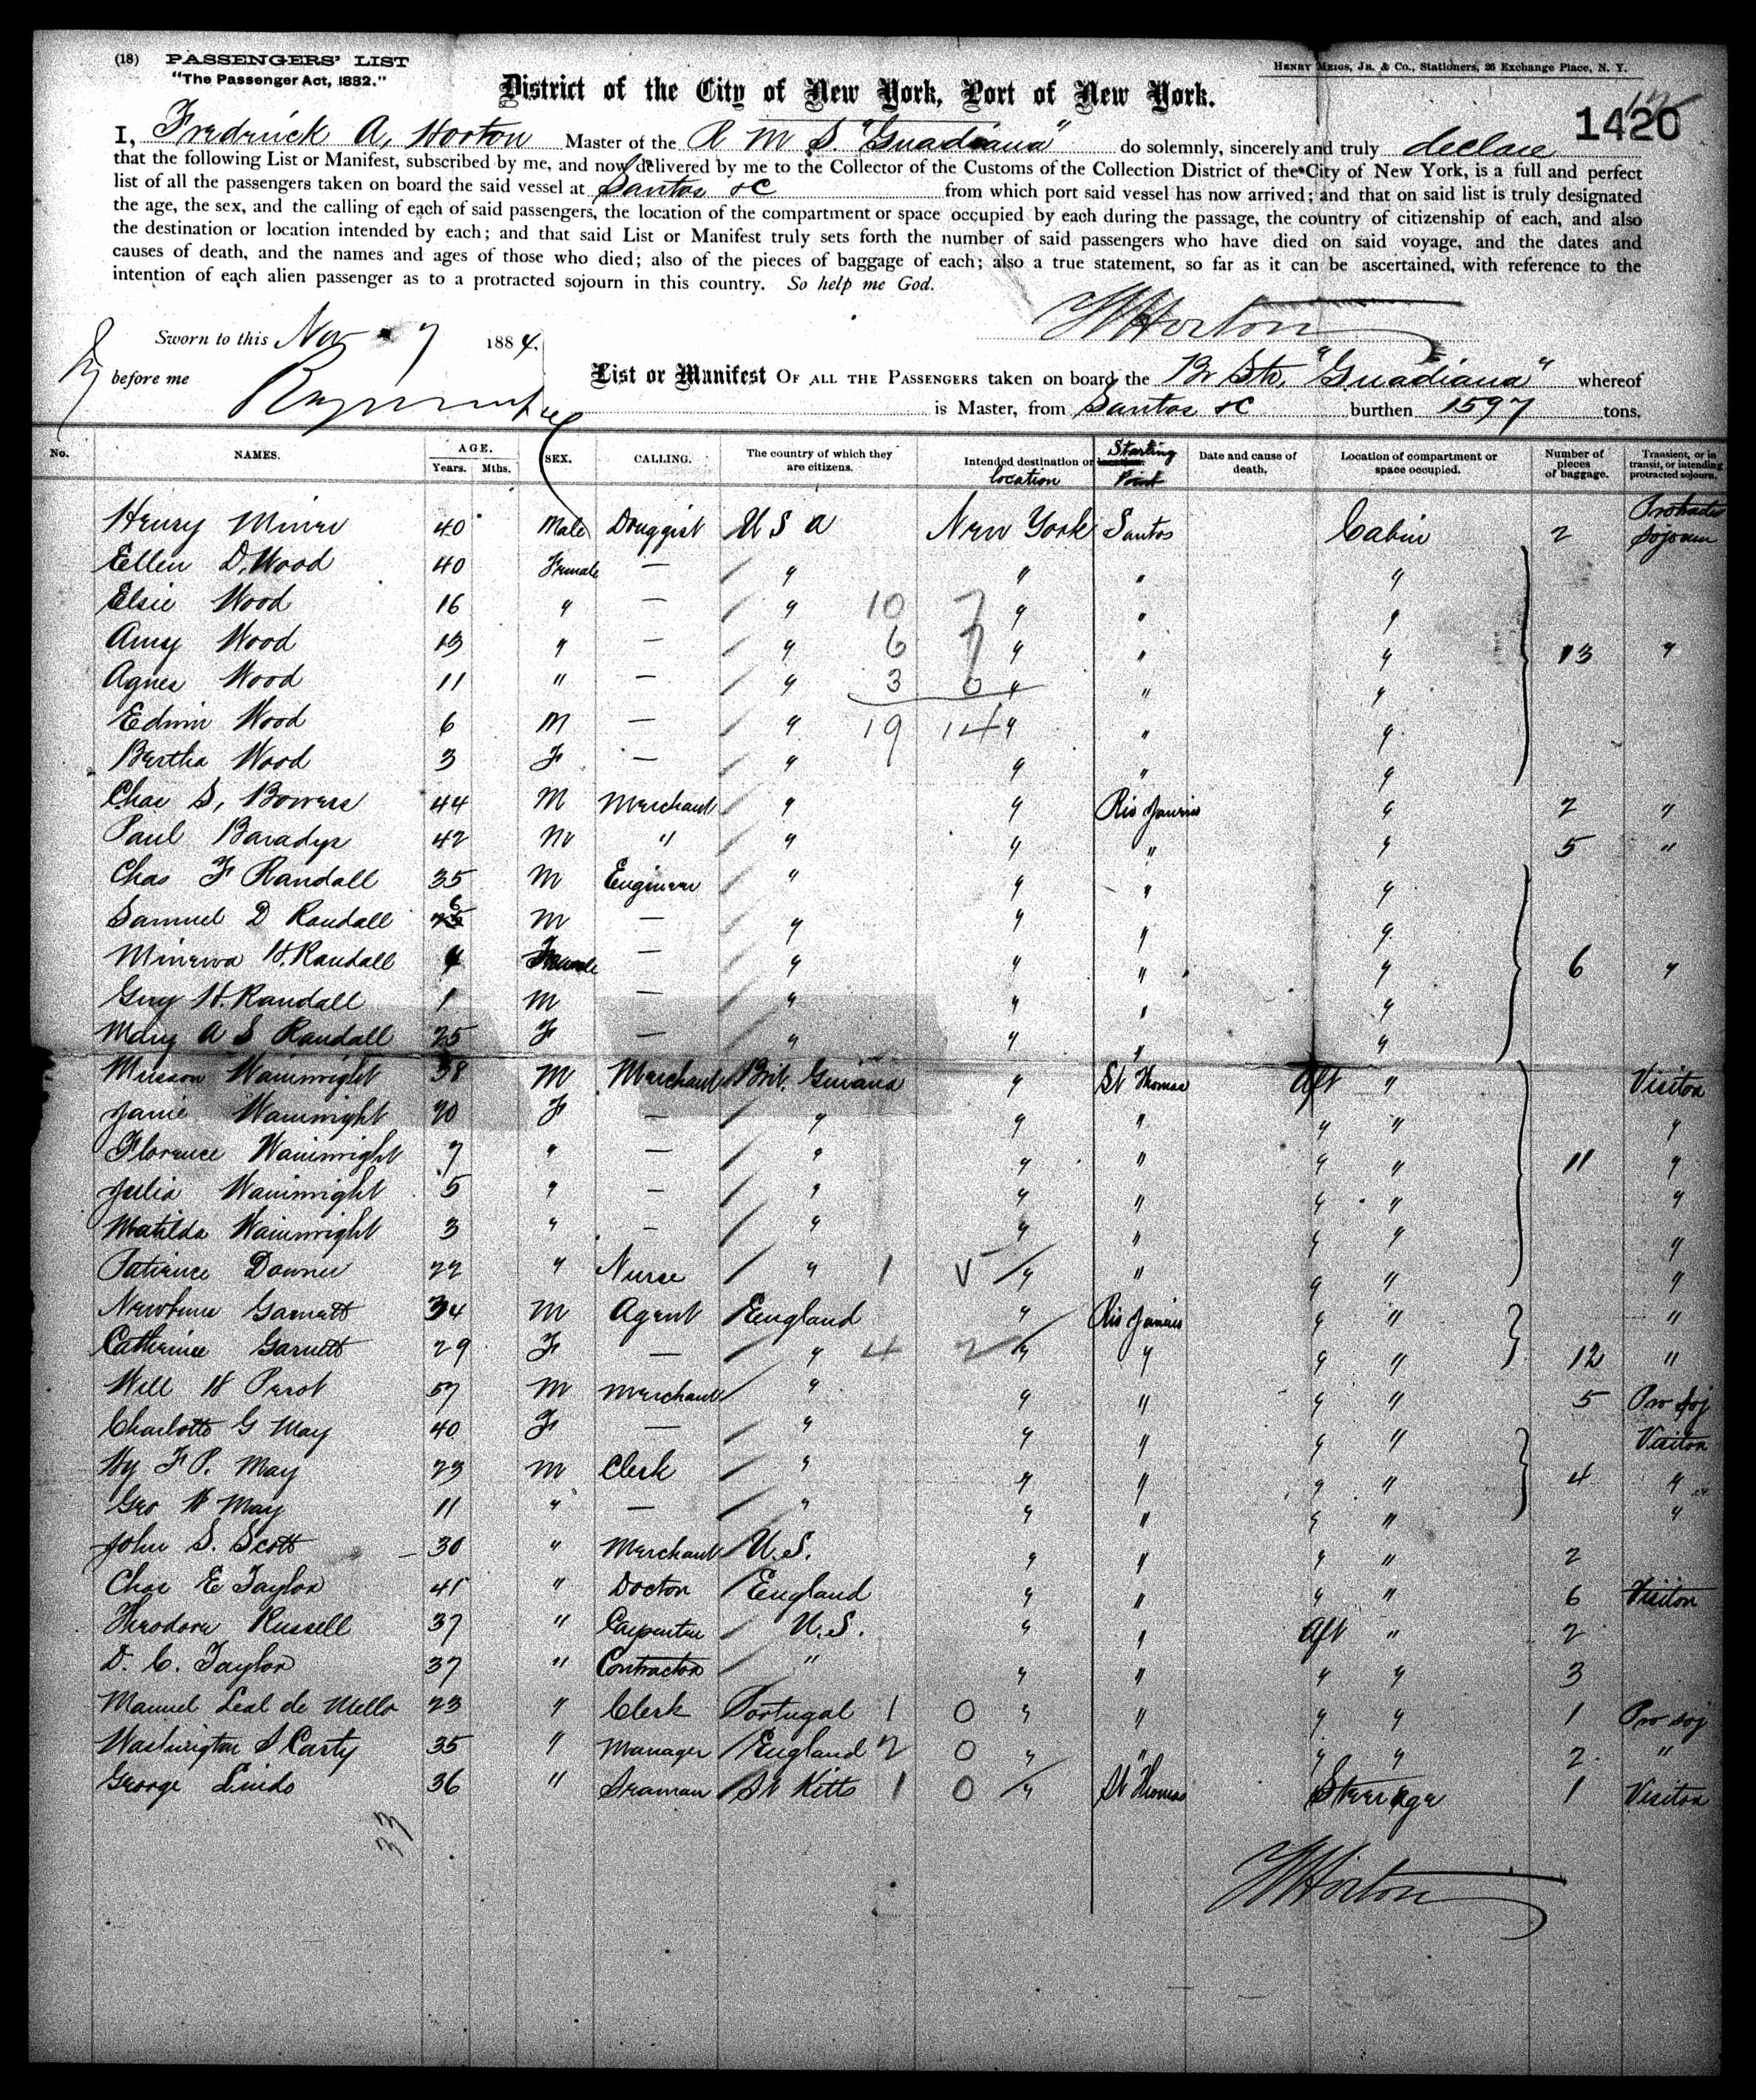 (18) PASSENGERS' LIST
"The Passenger Act, 1882."
HENRY MEIGS, JR. & CO., Stationers, 26 Exchange Place, N. Y.
District of the City of New York, Port of New York.
1420
I, Fredrick A, Horton Master of the R M S "Guadiana" do solemnly, sincerely and truly declare
that the following List or Manifest, subscribed by me, and now delivered by me to the Collector of the Customs of the Collection District of the City of New York, is a full and perfect
list of all the passengers taken on board the said vessel at Santos &C from which port said vessel has now arrived; and that on said list is truly designated
the age, the sex, and the calling of each of said passengers, the location of the compartment or space occupied by each during the passage, the country of citizenship of each, and also
the destination or location intended by each; and that said List or Manifest truly sets forth the number of said passengers who have died on said voyage, and the dates and
causes of death, and the names and ages of those who died; also of the pieces of baggage of each; also a true statement, so far as it can be ascertained, with reference to the
intention of each alien passenger as to a protracted sojourn in this country. So help me God.
Horton
Sworn to this Nov 7 1884.
before me
List or Manifest OF ALL THE PASSENGERS taken on board the Br Str. "Guadiana" whereof
is Master, from Santos &C burthen 1597 tons.
No. NAMES. AGE. Years. Mths. SEX. CALLING. The country of which they are citizens. Intended destination or location Starting Point Date and cause of death. Location of compartment or space occupied. Number of pieces of baggage. Transient, or in transit, or intending protracted sojourn.
Henry Miner 40 Male Druggist U S A New York Santos Cabin 2 Protracted Sojourn
Ellen D. Wood 40 Female — " " " "
Elsie Wood 16 " — " 10 7 " " "
Amy Wood 13 " — " 6 7 " " " 13 "
Agnes Wood 11 " — " 3 0 " " "
Edwin Wood 6 M — " 19 14 " " "
Bertha Wood 3 F — " " " "
Chas S, Bowers 44 M Merchant " " Rio Janeiro " 2 "
Paul 42 M " " " " " 5 "
Chas F Randall 35 M Engineer " " " "
Samuel D Randall 6 M — " " " "
Minerva H. Randall 4 Female — " " " " 6 "
Guy H. Randall 1 M — " " " "
Mary A S Randall 25 F — " " " "
Wainwright 38 M Merchant Brit. Guiana " St Thomas Aft " Visitor
Janie Wainwright 20 F — " " " " " "
Florence Wainwright 7 " — " " " " " 11 "
Julia Wainwright 5 " — " " " " " "
Matilda Wainwright 3 " — " " " " " "
Patience Downer 22 " Nurse " 1 " " " " "
Garnett 34 M Agent England " Rio Janeiro " " "
Catherine Garnett 29 F — " 4 2 " " " " 12 "
Will H Perot 57 M Merchant " " " " " 5 Pro Soj
Charlotte G May 40 F — " " " " " Visitor
Hy F P. May 23 M Clerk " " " " " 4 "
Geo H May 11 " — " " " " " "
John S. Scott 30 " Merchant U.S. " " " " 2
Chas E Taylor 41 " Doctor England " " " " 6 Visitor
Theodore Russell 37 " Carpenter U.S. " " Aft " 2
D. C. Taylor 37 " Contractor " " " " " 3
Manuel Leal de Mello 23 " Clerk Portugal 1 0 " " " " 1 Pro soj
Washington S Carty 35 " Manager England 2 0 " " " " 2 "
George Lindo 36 " Seaman St Kitts 1 0 " St Thomas Steerage 1 Visitor
33
Horton